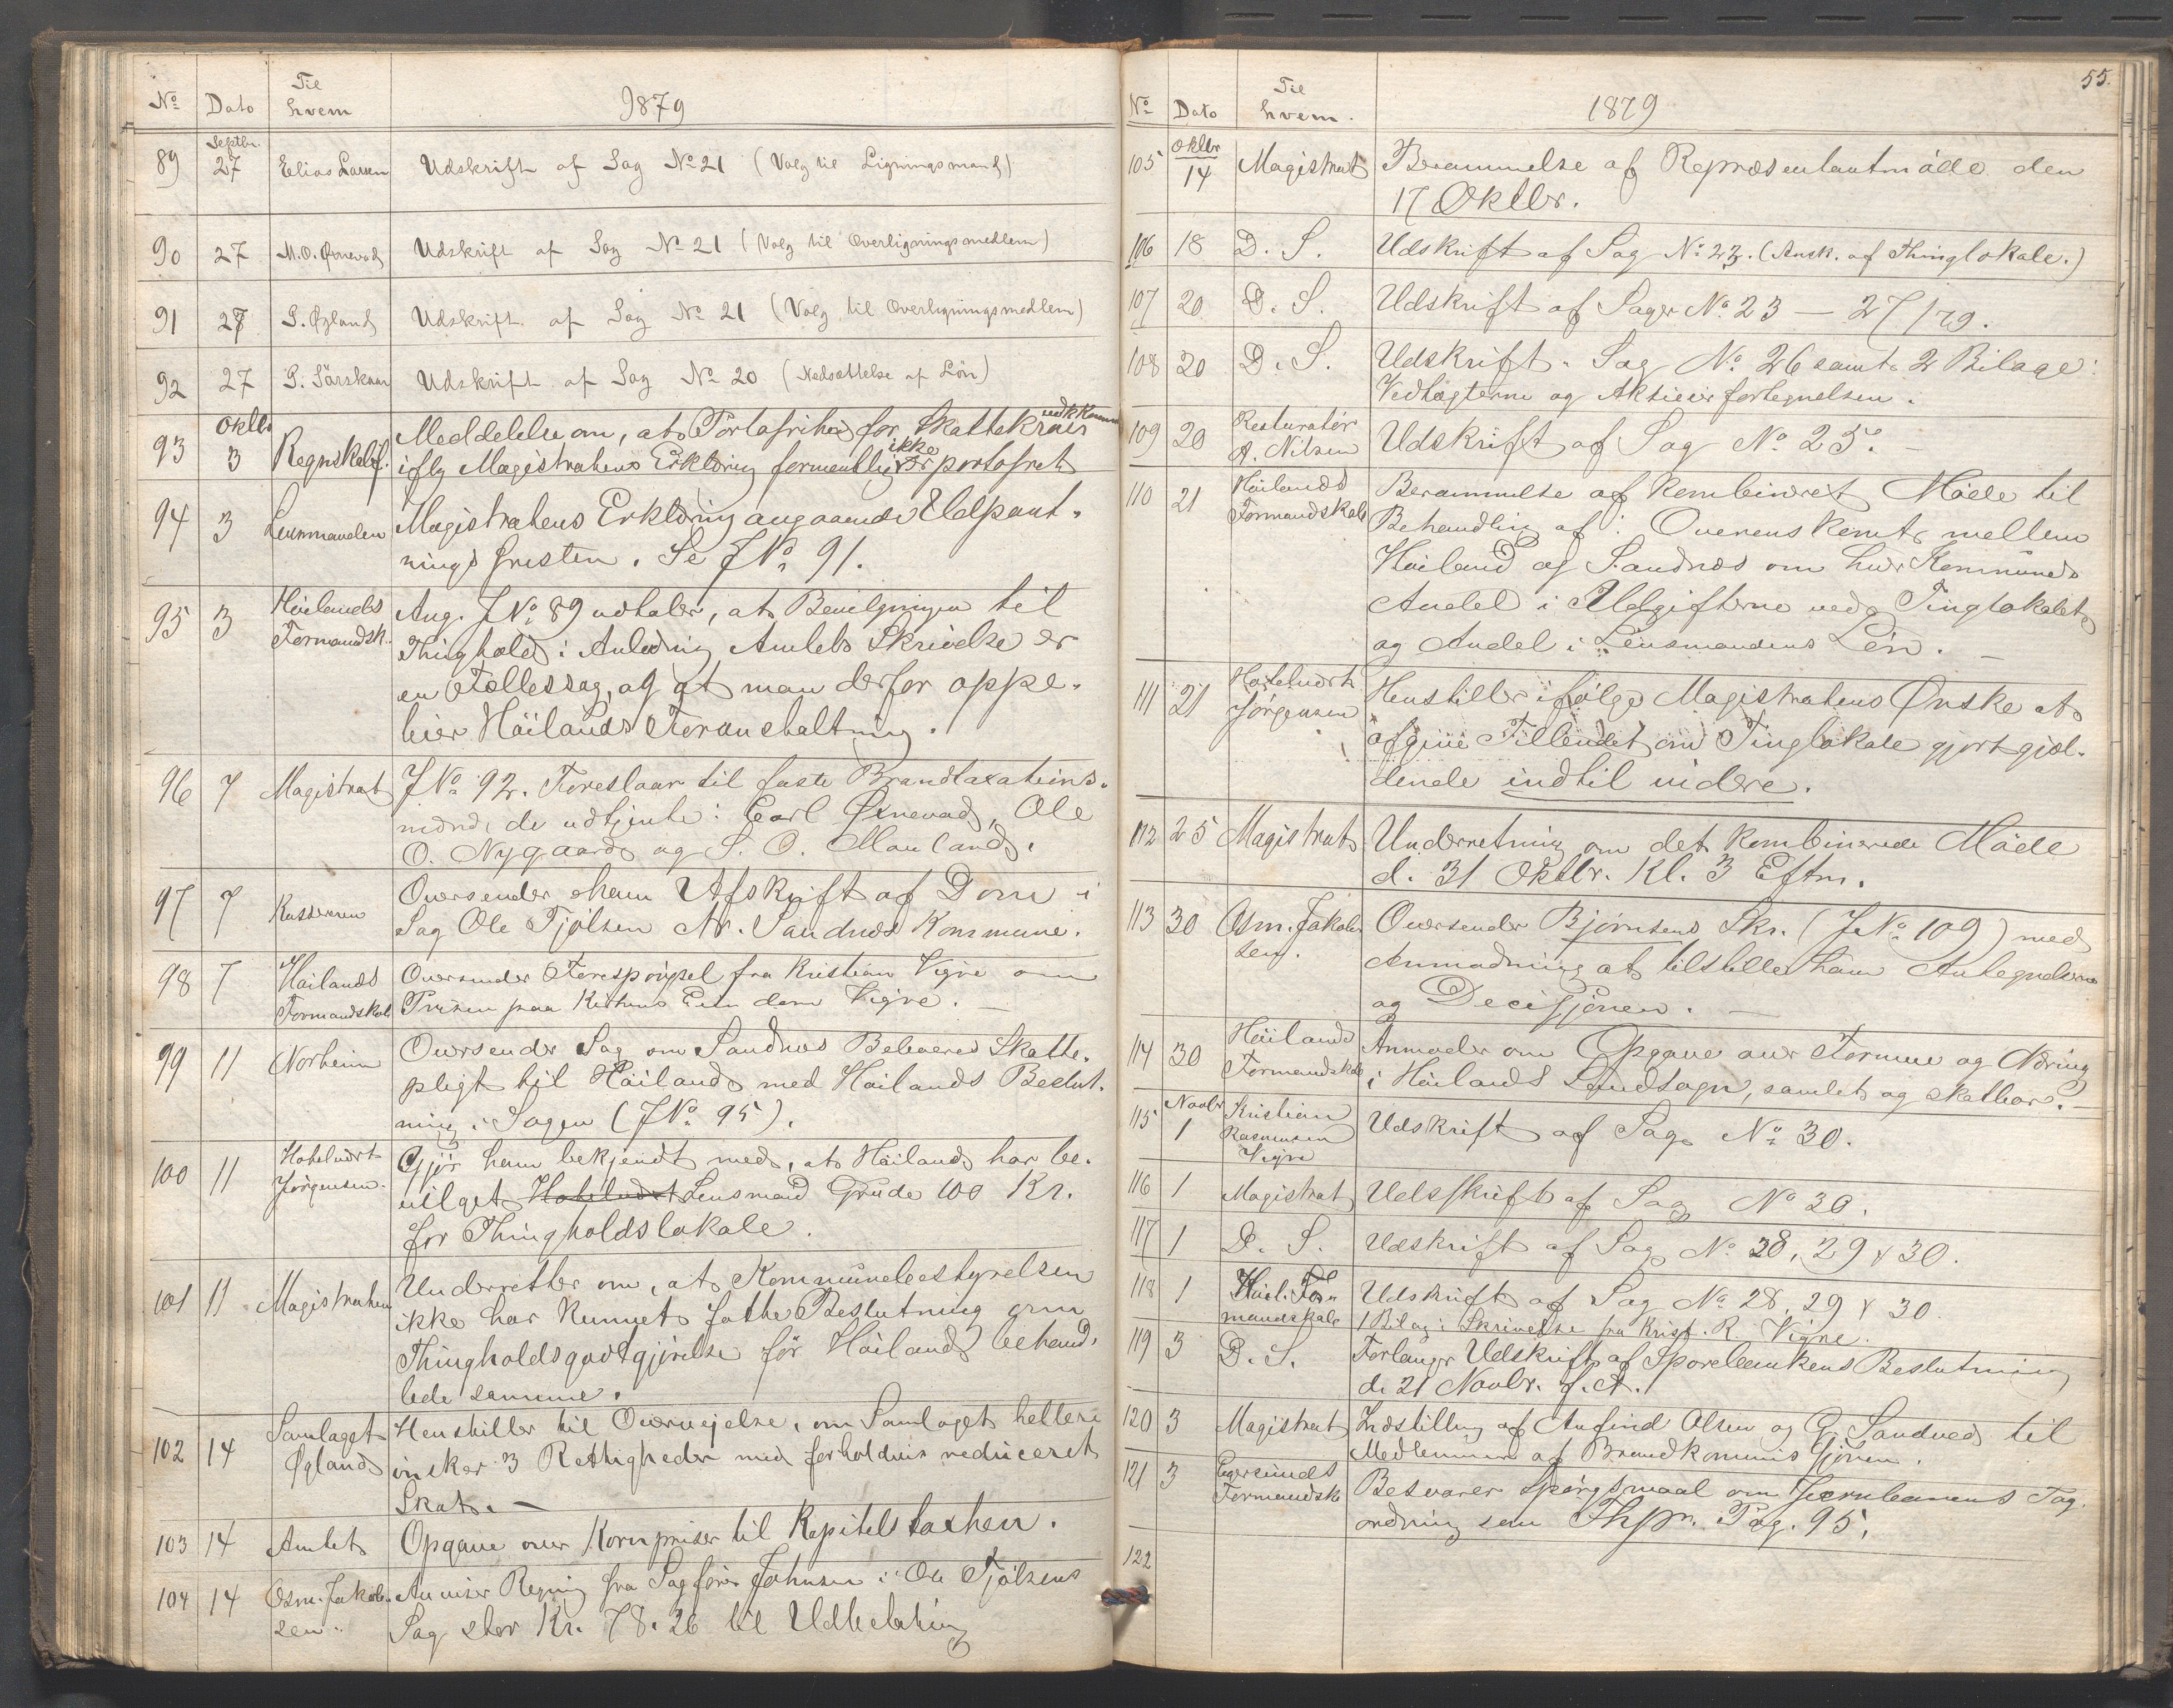 No Dato Til hvem 1879
89 Septbr. 27 Elias Larsen Udskrift af Sag No 21 (Valg til Ligningsmand)
90 27 M. O. Ørnevad Udskrift af Sag No 21 (Valg til Overligningsmedlem)
91 27 S. Øgland Udskrift af Sag No 21 (Valg til Overligningsmedlem)
92 27 Udskrift af Sag No 20 (Nedsættelse af Lön)
93 Oktbr 3 Regnskabsf. Meddelelse om, at Portofrihed for Skattekrav
ifly Magistratens Erklæring formentlig ikke er portofrit
94 3 Lensmanden Magistratens Erklæring angaaende Udpant-
nings fristen. Se J No 91.
95 3 Höilands Formandsk. Ang. J No 89 udtaler, at Bevilgningen til
Thinghold i Anledning Amtets Skrivelse er
en Fællessag, og at man derfor oppe-
bier Höilands Foranstaltning.
96 7 Magistrat J No 92. Foreslaar til faste Brandtaxations-
mænd, de udtjente: Carl Ørnevad, Ole
O. Nygaard og S. O. Mauland.
97 7 Kassereren Oversender ham Afskrift af Dom i
Sag Ole Tjölsen Ctr. Sandnes Kommune.
98 7 Höilands Formandskab Oversender Forespörgsel fra Kristian Vigre om
Prisen paa Eiendom Vigre. —
99 11 Norheim Oversender Sag om Sandnes Beboeres Skatte-
pligt til Höiland med Höilands Beslut-
ning i Sagen (J No 95).
100 11 Hotelvært Jörgensen Gjör ham bekjendt med, at Höiland har be-
vilget Hotelvært Lensmand Grude 100 Kr.
for Thingholdslokale.
101 11 Magistraten Underretter om, at Kommunebestyrelsen
ikke har kunnet fatte Beslutning om
Thingholdsgodtgjörelse för Höiland behand-
lede samme.
102 14 Samlaget Øgland Henstiller til Overveielse, om Samlaget hellere
önsker 3 Rettigheder med forholdsvis reduceret
Skat. —
103 14 Amtet Opgave over Kornpriser til Kapitelstaxten.
104 14 Osm. Jakob- Anviser Regning fra Sagförer Johnsen i Ole Tjölsens
sen Sag stor Kr. 78.26 til Udbetaling
55.
No Dato Til hvem. 1879
105 Oktbr 14 Magistrat Berammelse af Repræsentantmöde den
17 Oktbr.
106 18 D. S. Udskrift af Sag No 23. (Ansk. af Thinglokale.)
107 20 D. S. Udskrift af Sager No 23 — 27/79.
108 20 D. S. Udskrift Sag No 26 samt 2 Bilage:
Vedtægterne og Aktieierfortegnelsen.
109 20 Restauratör A. Nilsen Udskrift af Sag No 25. —
110 21 Höilands Formandskab Berammelse af kombineret Möde til
Behandling af: Overenskomst mellem
Höiland og Sandnes om hver Kommunes
Andel i Udgifterne ved Tinglokalet
og Andel i Lensmandens Lön. —
111 21 Hotelvært Jörgensen Henstiller ifölge Magistratens Ønske at
afgive Tilbudet om Tinglokale gjort gjæl-
dende indtil videre.
112 25 Magistrat Underretning om det kombinerede Möde
d. 31 Oktbr. Kl. 3 Eftm.
113 30 Osm. Jakob- Oversender Björnsens Skr. (J. No 109) med
sen. Anmodning at tilstille ham Antegnelserne
og Decisjonen. —
114 30 Höilands Formandskab Anmoder om Opgave over Formue og Næring
i Höilands Landsogn, samlet og skatbar. —
115 Novbr 1 Kristian Rasmussen Vigre Udskrift af Sag No 30.
116 1 Magistrat Udskrift af Sag No 30.
117 1 D. S. Udskrift af Sag No 28, 29 & 30.
118 1 Höil. For- Udskrift af Sag No 28, 29 & 30
mandskab 1 Bilag: Skrivelse fra Krist. R. Vigre.
119 3 D. S. Forlanger Udskrift af Sparebankens Beslutning
d. 21 Novbr. f. A.
120 3 Magistrat Indstilling af Anfind Olsen og G. Sandved til
Medlemmer af Brandkommissjonen.
121 3 Egersunds Formandsk Besvarer Spörgsmaal om Jernbanens Tog-
ordning som Pag. 95.
122